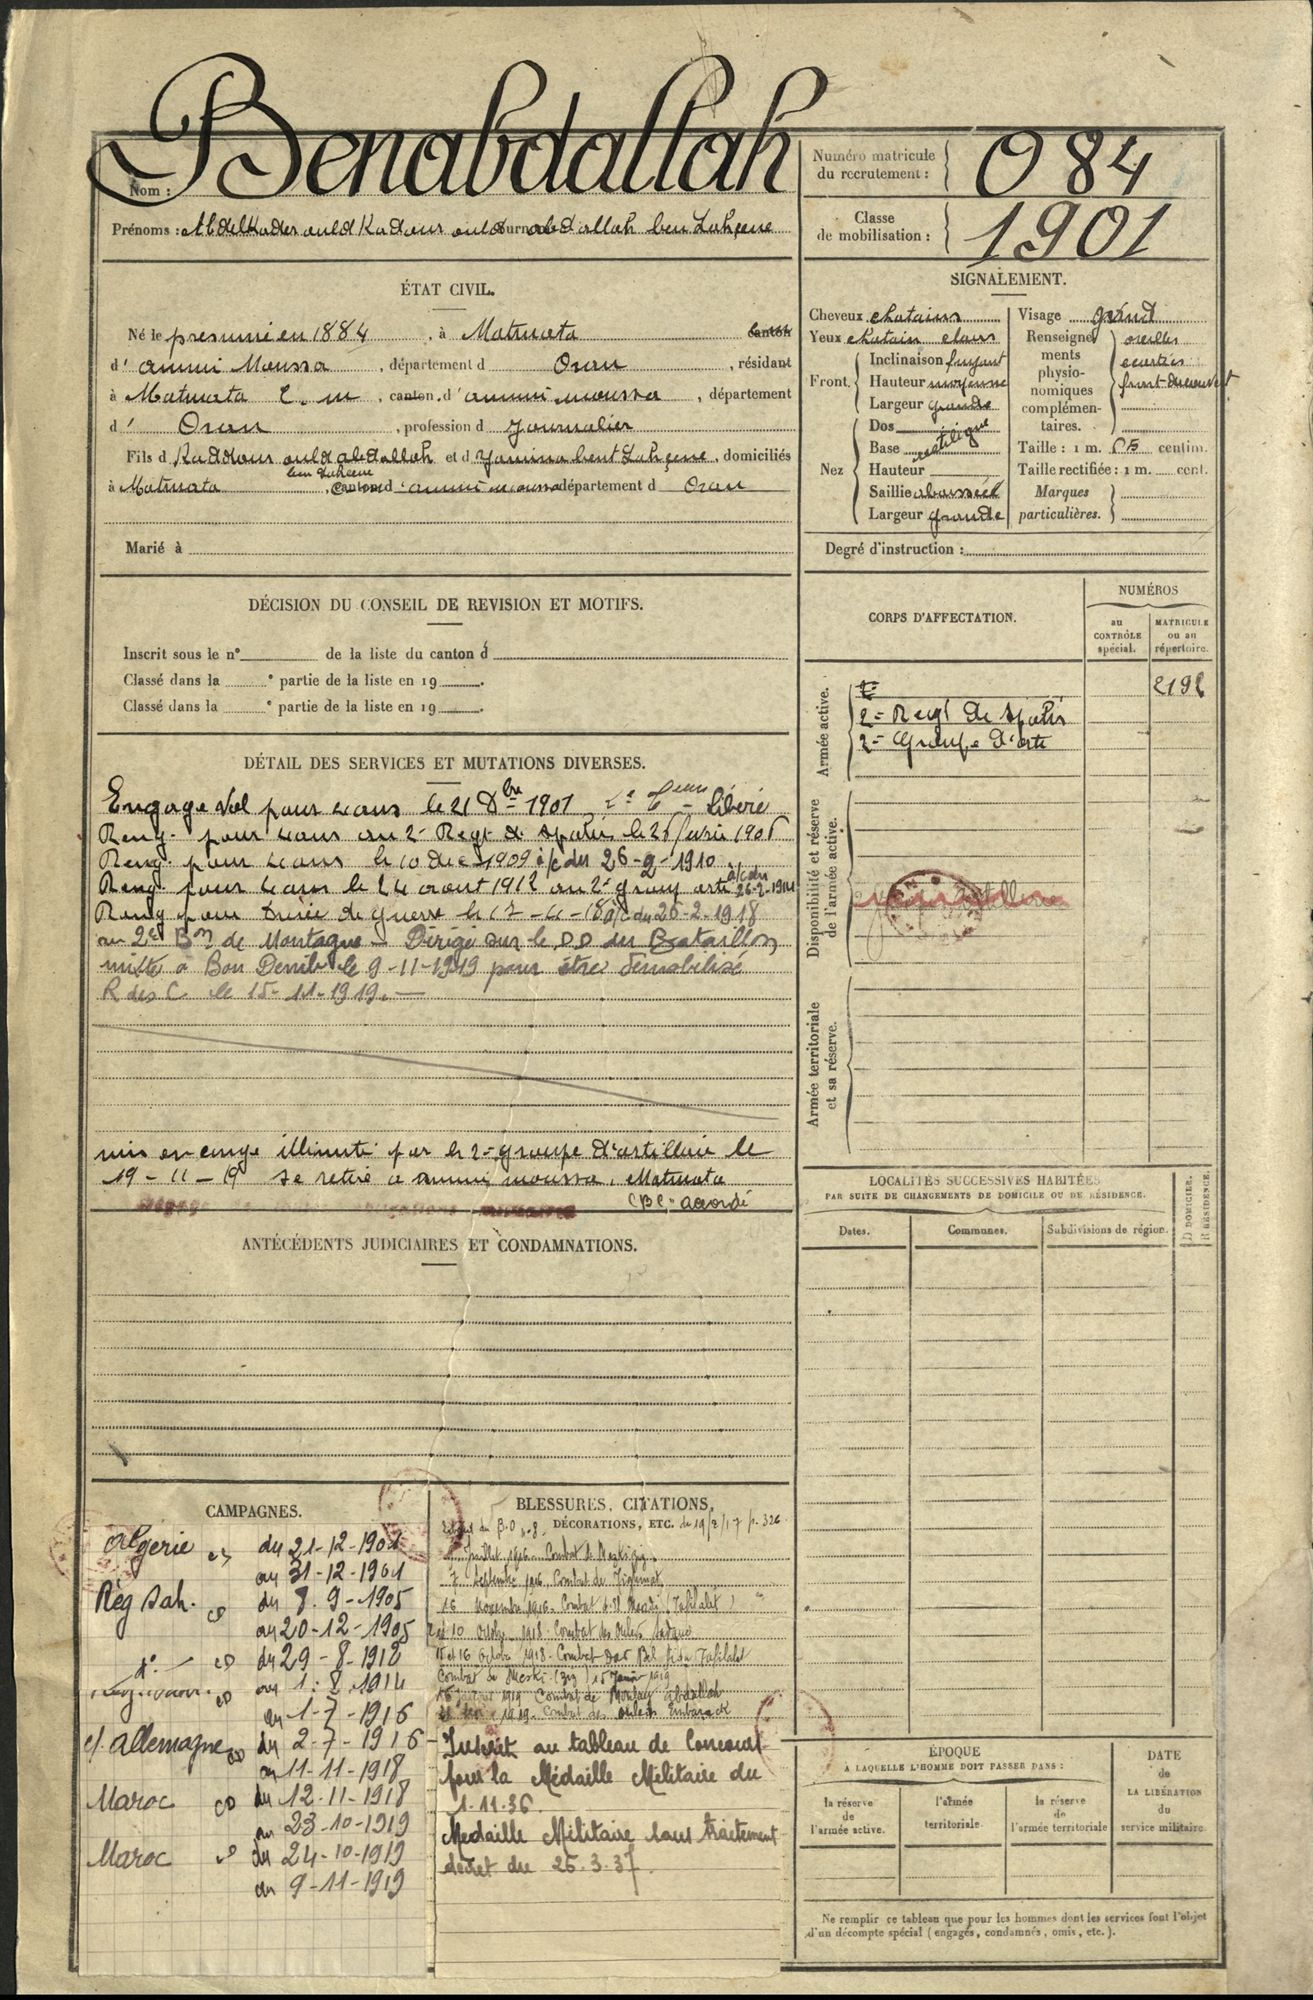 Nom : Benabdallah
Prénoms : Abdelkader ould Kadour ould abdallah ben Lahcene
Numéro matricule du recrutement : 084
Classe de mobilisation : 1901
ÉTAT CIVIL.
Né le presumé en 1884, à Matmata canton
d' ammi Moussa, département d Oran, résidant
à Matmata C. m, canton d' ammi-moussa, département
d' Oran, profession d Journalier
Fils d Kaddour ould abdallah et d Yamina bent Lahcene, domiciliés
ben Lahcene
à Matmata, canton d' ammi moussa département d Oran
Marié à
SIGNALEMENT.
Cheveux chatains
Yeux chatain clairs
Front. Inclinaison fuyant
Hauteur moyenne
Largeur grande
Nez Dos
Base
Hauteur
Saillie abaissée
Largeur grande
Visage grand
Renseignements physionomiques complémentaires. oreilles
ecartées
front découvert
Taille : 1 m. centim.
Taille rectifiée : 1 m. cent.
Marques particulières.
Degré d'instruction :
DÉCISION DU CONSEIL DE REVISION ET MOTIFS.
Inscrit sous le n° de la liste du canton d
Classé dans la e partie de la liste en 19 .
Classé dans la e partie de la liste en 19 .
CORPS D'AFFECTATION.
NUMÉROS
au CONTRÔLE spécial.
MATRICULE ou au répertoire.
Armée active.
2192
2e Regt de Spahis
2e Groupe d'arte
Disponibilité et réserve de l'armée active.
Armée territoriale et sa réserve.
DÉTAIL DES SERVICES ET MUTATIONS DIVERSES.
Engagé Vol pour 4 ans le 21 Dbre 1901 Libéré
Reng. pour 4 ans au 2e Regt de Spahis le 26 fevrier 1906
Reng. pour 4 ans le 10 dec 1909 à/c du 26-2-1910
Reng. pour 4 ans le 24 aout 1912 au 2e group arte à/c du 26-2-1914
Reng pour Durée de guerre le 17-4-18 à/c du 26-2-1918
au 2e Bon de Montagne - Dirigé sur le DD du Bataillon
mixte à Bou Denib le 9-11-1919 pour être demobilisé
R des C le 15-11-1919. —
mis en congé illimité par le 2e groupe d'artillerie le
19-11-19 se retire a ammi moussa, Matmata
CBC: accordé
ANTÉCÉDENTS JUDICIAIRES ET CONDAMNATIONS.
LOCALITÉS SUCCESSIVES HABITÉES
PAR SUITE DE CHANGEMENTS DE DOMICILE OU DE RÉSIDENCE.
Dates.
Communes.
Subdivisions de région.
D DOMICILE.
R RÉSIDENCE.
CAMPAGNES.
Algerie du 21-12-1901
au 31-12-1901
Rég Sah. du 8-9-1905
au 20-12-1905
d° du 29-8-1912
au 1-8-1914
au 1-7-1916
c/ Allemagne du 2-7-1916
au 11-11-1918
Maroc du 12-11-1918
au 23-10-1919
Maroc du 24-10-1919
au 9-11-1919
BLESSURES, CITATIONS, DÉCORATIONS, ETC.
Extrait du B.O n° 8. du 19/2/17 p. 326
Juillet 1916 Combat de Meski
7 Septembre 1916, Combat de Tighmart
16 Novembre 1916. Combat (Tafilalet)
10 Octobre 1918. Combat des Ouled
15 et 16 Octobre 1918. Combat Dar Bel Tafilalet
Combat de Meski 15 Janvier 1919
1919 Combat de Moulay abdallah
1919. Combat des ouled Embarack
Inscrit au tableau de Concours
pour la Médaille Militaire du
1-11-36.
Medaille Militaire sans traitement
décret du 25.3.37.
ÉPOQUE
À LAQUELLE L'HOMME DOIT PASSER DANS :
la réserve de l'armée active.
l'armée territoriale.
la réserve de l'armée territoriale
DATE de LA LIBÉRATION du service militaire.
Ne remplir ce tableau que pour les hommes dont les services font l'objet
d'un décompte spécial (engagés, condamnés, omis, etc.).